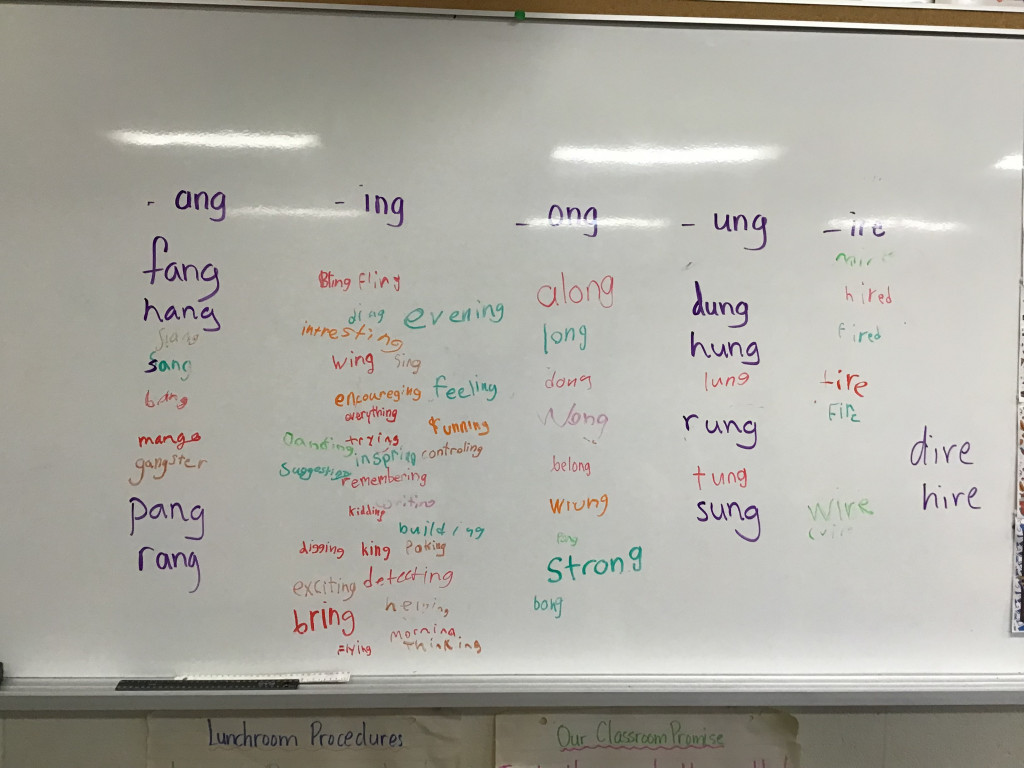 - ang
fang
hang
sang
bang
mango
gangster
pang
rang
- ing
Bling Fling
ding evening
intresting
wing Sing
encoureging feeling
everything
running
Danding trying
inspring controling
Suggesting
remembering
kidding writing
building
digging king Poking
exciting detecting
bring helping
morning
Flying thinking
- ong
along
long
dong
Wong
belong
wrung
Strong
bong
- ung
dung
hung
lung
rung
tung
sung
- ire
hired
Fired
tire
Fire
wire
dire
hire
Lunchroom Procedures
Our Classroom Promise